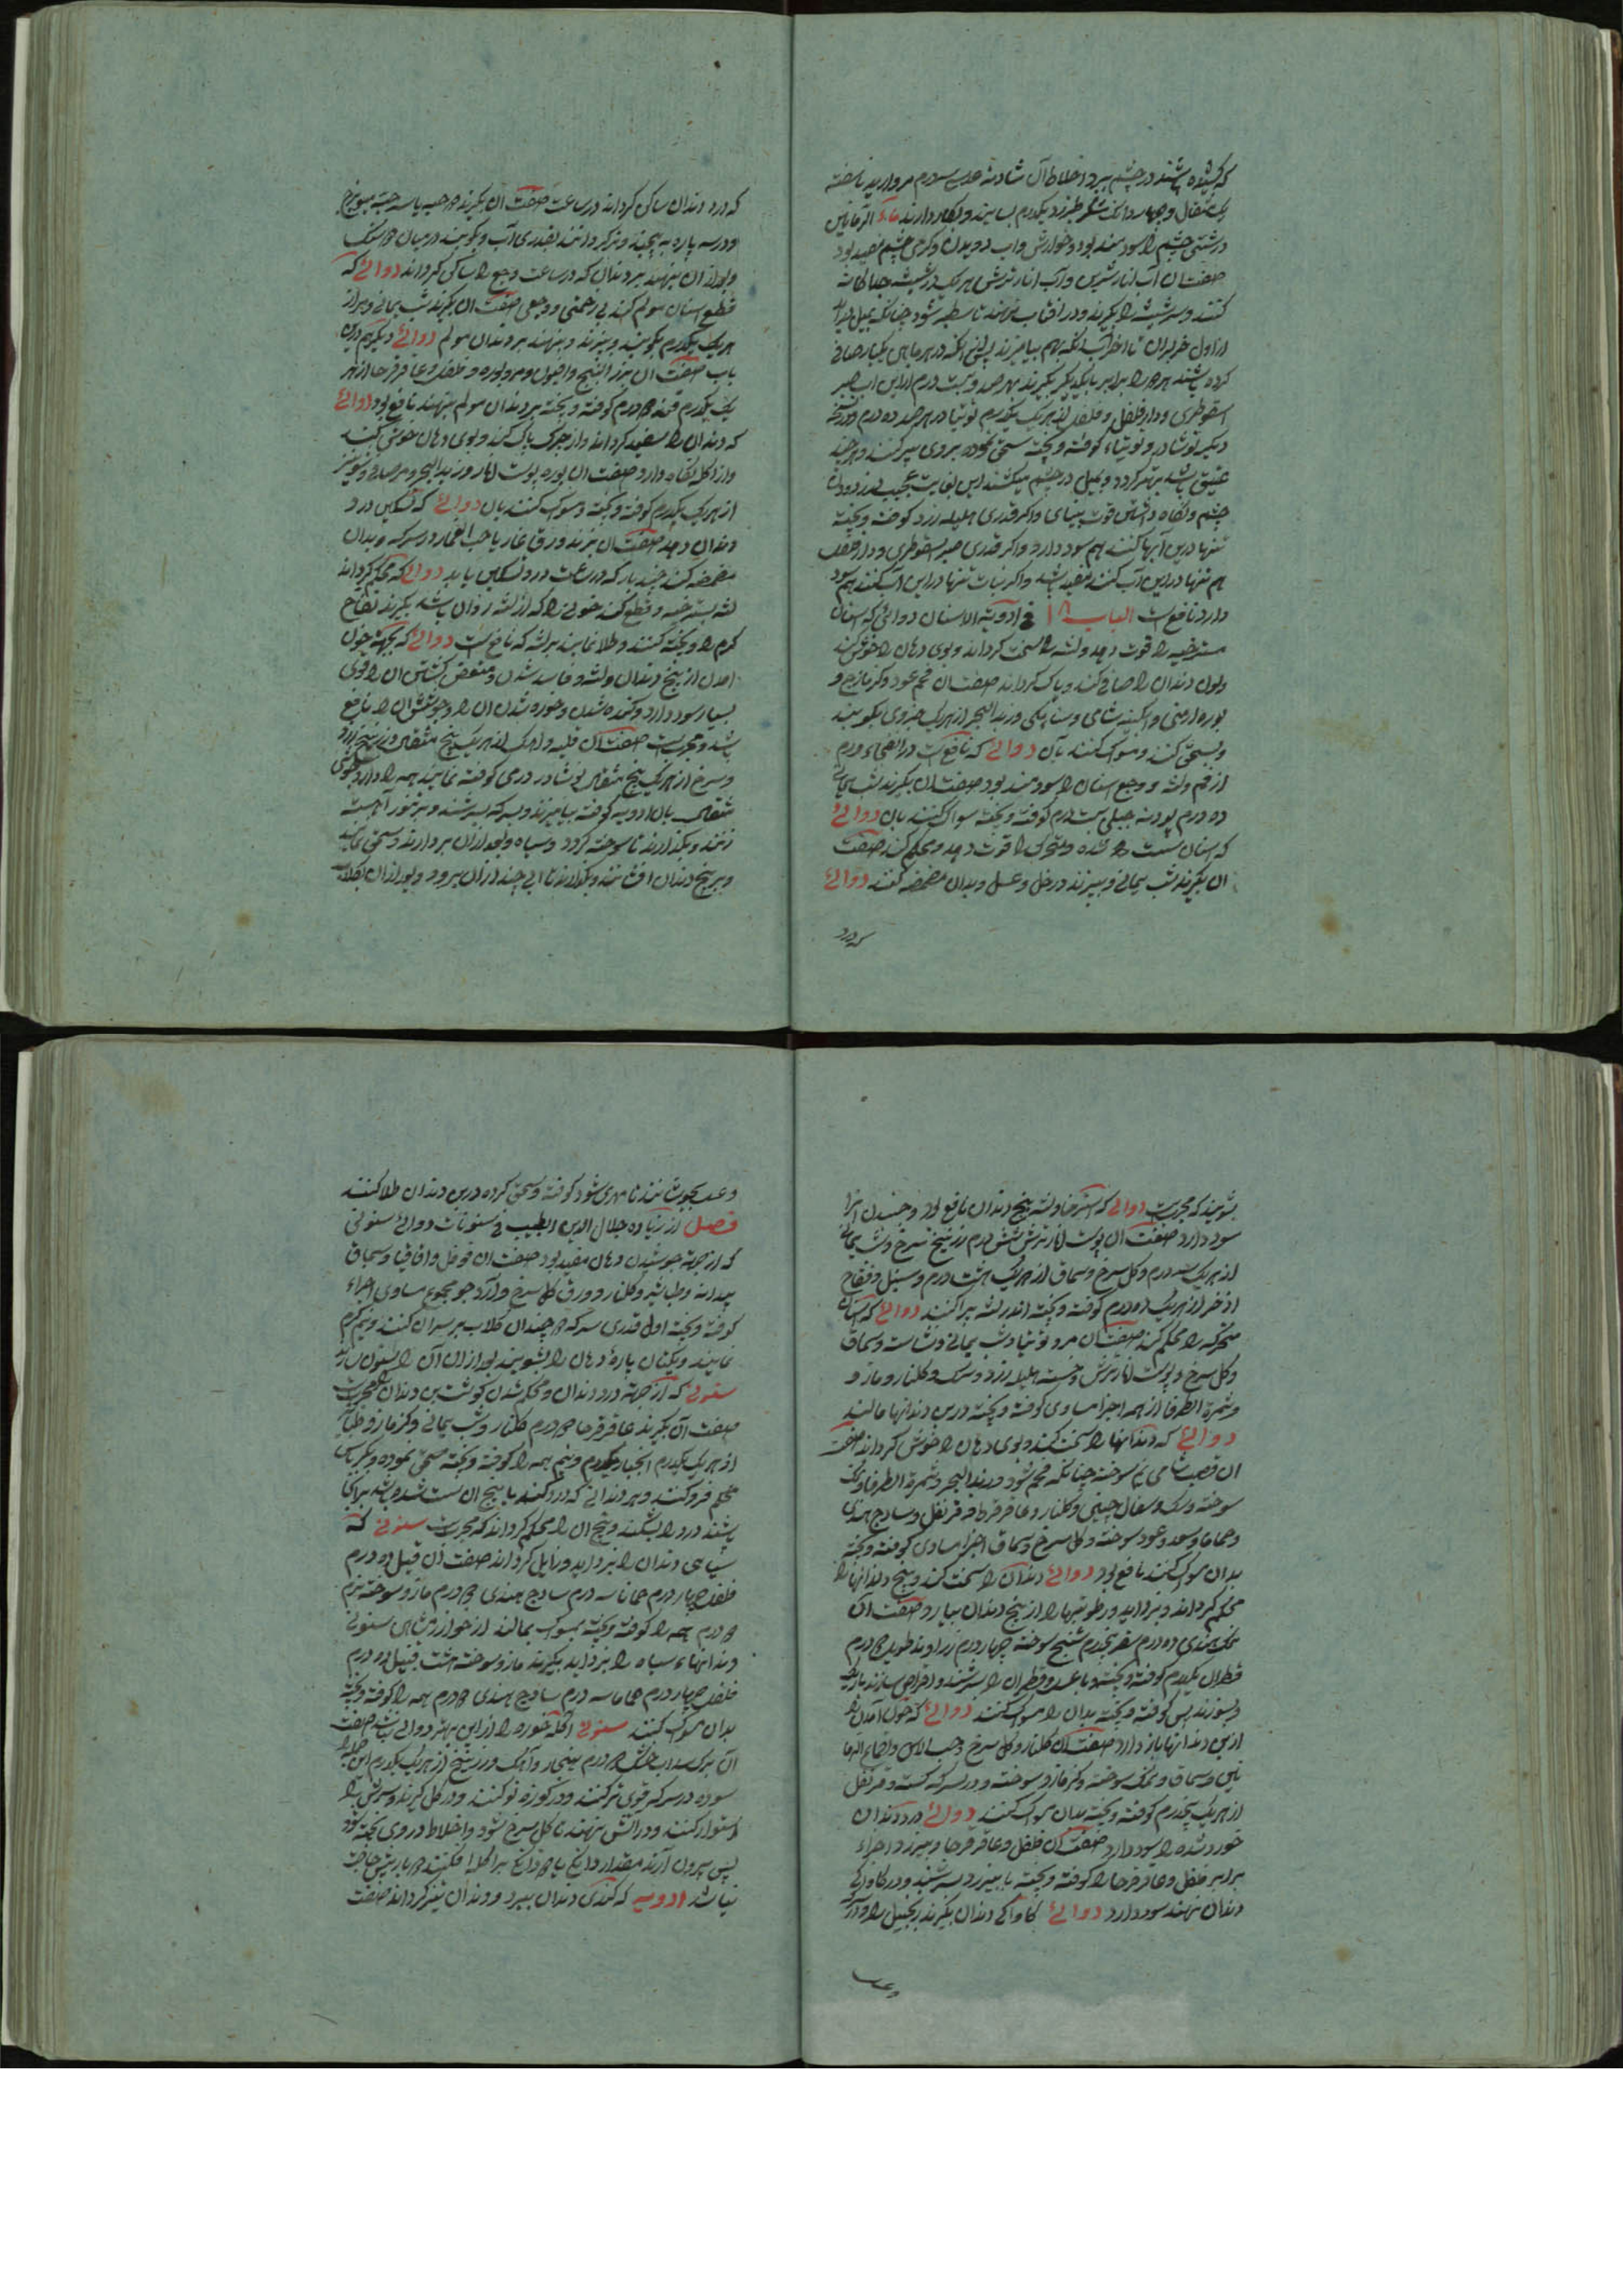 که رسیده باشند در چشم ببرد اخلاط آن شادنهٔ عدسی سه درم مروارید ناسفته
یک مثقال و چهار دانک شکر طبرزد یکدرم بسایند و بکار دارند ماء الرمانین
درشتی چشم را سودمند بود و خوارش و آب دویدن و گرمی چشم مفید بود
صفت آن آب انار شیرین و آب انار ترش هر یک در شیشه جداگانه
کنند و سر شیشه را بگیرند و در آفتاب نهند تا سطبر شود چنانکه بمیل براید
از اول خزیران تا اخر آب انکه بهم بیامیزند پس انکه در هر ماهی یکبار صافی
کرده باشند هر دو را برابر با یکدیگر بگیرند بهر صد و بیست درم ازین آب صبر
اسقوطری و دار فلفل و فلفل از هر یک یکدرم توتیا در هر صد ده درم و در نسخه
دیگر نوشادر و توتیاء کوفته و بیخته سحق کرده بروی سپر کنند و هر چند
عتیق باشد بهتر کردد و بمیل در چشم میکشند این بغایت عجیب در درد
چشم و نکاه داشتن قوت بینای و اکر قدری هلیله زرد کوفته و بیخته
تنها درین آبها کنند هم سود دارد و اکر قدری صبر اسقوطری و دار فلفل
هم تنها در این آب کنند مفید باشد و اکر نبات تنها در این آب کنند هم سود
دارد نافع است الباب ۱۸ فی ادویة الاسنان دوائی که اسنان
مسترخیه را قوت دهد و لثه را سخت کرداند و بوی دهان را خوش کند
و لون دندان را صافی کند و پاک کرداند صفت آن فحم عود و کزمازج و
بوره ارمنی و آبکینه شامی و سنامکی و زبد البحر از هر یک جزوی بکوبند
و سحق کنند و مسواک کنند بآن دوائے که نافع است در ابتداء ورم
از فم و لثه و وجع اسنان را سودمند بود صفت آن بکیرند شب یمانی
ده درم پودنه جبلی بیست درم کوفته و بیخته سواک کنند بآن دوائے
که اسنان سست شده و متحرک را قوت دهد و محکم کند صفت
آن بکیرند شب یمانی و بپزند در خل و عسل و بدان مضمضه کنند دوائے
که درد
که درد دندان ساکن کرداند در ساعت صفت آن بکیرند دو حبه یا سه حبه میویزج
و در سه پاره به پیچند و تر کردانند بقدری آب و بکوبند در میان دو سنک
و بعد از آن بنهند بر دندان که در ساعت وجع را ساکن کرداند دوائے که
قطع اسنان مولم کند بی زحمتی و وجعی صفت آن بکیرند شب یمانی و
هر یک یکدرم بکوبند و بپزند و بنهند بر دندان مولم دوائے دیکر هم درین
باب صفت آن بزر البنج و افیون و مر و بوره و فلفل و عاقرقرحا از هر
یک یکدرم قند دو درم کوفته و بیخته بر دندان مولم بنهند نافع بود دوائے
که دندان را سفید کرداند و از چرک پاک کند و بوی دهان خوش کند
و از اکله نکاه دارد صفت آن بوره پوست انار و زبد البحر و مر و صدف
از هر یک یکدرم کوفته و بیخته و مسواک کنند بآن دوائے که تسکین درد
دندان دهد صفت آن بپزند ورق غار یا حب الغار در سرکه و بدان
مضمضه کنند چند بار که در ساعت درد تسکین یابد دوائے که محکم کرداند
لثه مسترخیه و قطع کند خونی را که از لثه روان باشد بکیرند فقاح
کرم را و بیخته کنند و طلا نمایند بر لثه که نافع است دوائے که بجهة خون
آمدن از بیخ دندان و لثه و فاسد شدن و متعفن کشتن آن را قوی
بسیار سود دارد و کنده شدن و خوره شدن آن را و جوشش آن را نافع
باشد و مجرب است صفت آن قلیه و آهک از هر یک پنج مثقال و زرنیخ زرد
و سرخ از هر یک پنج مثقال نوشادر درمی کوفته نمایند همه را
مثقال بآن ادویه کوفته بیامیزند و بسرکه بسرشند و بر تنور آهسته
نهند و بکذارند تا سوخته کردد و سیاه و بعد از آن بردارند و سحق نمایند
و بر بیخ دندان افشانند و بکذارند تا آبی چند از آن برود و بعد از آن بکلاب
بشویند که مجربست دوائے که استرخاء لثه و بیخ دندان نافع بود و جنبیدن آنرا
سود دارد صفت آن پوست انار ترش شش درم زرنیخ سرخ و شب یمانی
از هر یک سه درم و کل سرخ و سماق از هر یک هشت درم و سنبل و فقاح
اذخر از هر یک دو درم کوفته و بیخته اندر لثه پراکنند دوائے که اسنان
متحرکه را محکم کند صفت آن مر و توتیا و شب یمانی و نشاسته و سماق
و کل سرخ و پوست انار ترش و خسته هلیله زرد و سک و کلنار و مازو
و ثمرة الطرفا از همه اجزا مساوی کوفته و بیخته در بن دندانها مالند
دوائے که دندانها را سخت کند و بوی دهان را خوش کرداند صفت
آن قصب شامی نیم سوخته چنانکه فحم شود و زبد البحر و ثمرة الطرفا و نمک
سوخته و سک و سفال چینی و کلنار و عاقرقرحا و قرنفل و سادج هندی
و حماما و سعد و عود سوخته و کل سرخ و سماق اجزا مساوی کوفته و بیخته
بدان مسواک کنند نافع بود دوائے دندان را سخت کند و بیخ دندانها را
محکم کرداند و بزداید و رطوبتها را از بیخ دندان بیارد صفت آن
نمک هندی ده درم سعتر پنجدرم شنج سوخته چهار درم زراوند طویل دو درم
قطران یکدرم کوفته و بیخته و با عسل و قطران را بسرشند و اقراص سازند
و بسوزند پس کوفته و بیخته بدان را مسواک کنند دوائے که خون آمدن را
از بن دندانها باز دارد صفت آن کلنار و کل سرخ و حب الاس و اقماع الرما
نین و سماق و نمک سوخته و کزمازو سوخته و در سرکه کشته و قرنفل
از هر یک پنجدرم کوفته و بیخته بدان مسواک کنند دوائے درد دندان
خورده شده را سود دارد صفت آن فلفل و عاقرقرحا و اجزاء
برابر فلفل و عاقرقرحا را کوفته و بیخته بامیزند و بسرشند و در کاواکی
دندان نهند سود دارد دوائے کاواکی دندان بکیرند زنجبیل را و در
و عسل
و عسل بجوشانند تا مهری شود کوفته و سحق کرده در بن دندان طلا کنند
فصل از زیاده جلال الدین الطبیب فی سنونات دوائے سنونی
که از جهة جوشیدن دهان مفید بود صفت آن فوفل و اقاقیا و سماق
بیدانه و طباشیر و کلنار و ورق کل سرخ و آرد جو مجموع مساوی اجزاء
کوفته و بیخته اول قدری سرکه دو چندان کلاب بر سر آن کنند و نیم کرم
نمایند و بکتان پارهٔ دهان را بشویند بعد از آن آن را سنون سازند
سنونے که از جهة درد دندان و محکم شدن گوشت بن دندان مجربست
صفت آن بکیرند عاقرقرحا دو درم کلنار و شب یمانی و کزمازو
از هر یک یکدرم انجبار یکدرم و نیم همه را کوفته و بیخته سحق نموده و بکرباس
محکم فرو کنند و بر دندانے که درد کند یا بیخ آن سست شده باشد پراکنده
باشند درد را بشکند و بیخ آن را محکم کرداند که مجربست سنونے که
سیاهی دندان را بزداید و زایل کرداند صفت آن قنبیل ده درم
فلفل چهار درم حماما سه درم سادج هندی دو درم مازو سوخته
دو درم همه را کوفته و بیخته بمسواک بمالند از خوارزمشاهی سنونے
دندانهاء سیاه را بزداید بکیرند مازو سوخته هشت قنبیل ده درم
فلفل چهار درم حماما سه درم سادج هندی دو درم همه را کوفته و بیخته
بدان مسواک کنند سنونے اکله خوره را ازین بهتر دوائے نباشد صفت
آن برک سداب خشک دو درم و آهک و زرنیخ از هر یک یکدرم این جمله را
سوده در سرکه قوی تر کنند و در کوزه نو کنند و در کل کیرند و سرش را
استوار کنند و در آتش نهند تا کل سرخ شود و اخلاط در وی پخته کردد
پس بیرون آرند مقدار دانکی یا دو دانک بر اکله افکنند دو بار بیش حاجت
نباشد ادویه که کندی دندان ببرد و دندان تیز کرداند صفت